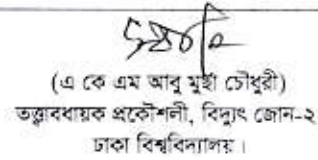 (এ কে এম আবু মুছা চৌধুরী)
তত্ত্বাবধায়ক প্রকৌশলী, বিদ্যুৎ জোন-২
ঢাকা বিশ্ববিদ্যালয়।